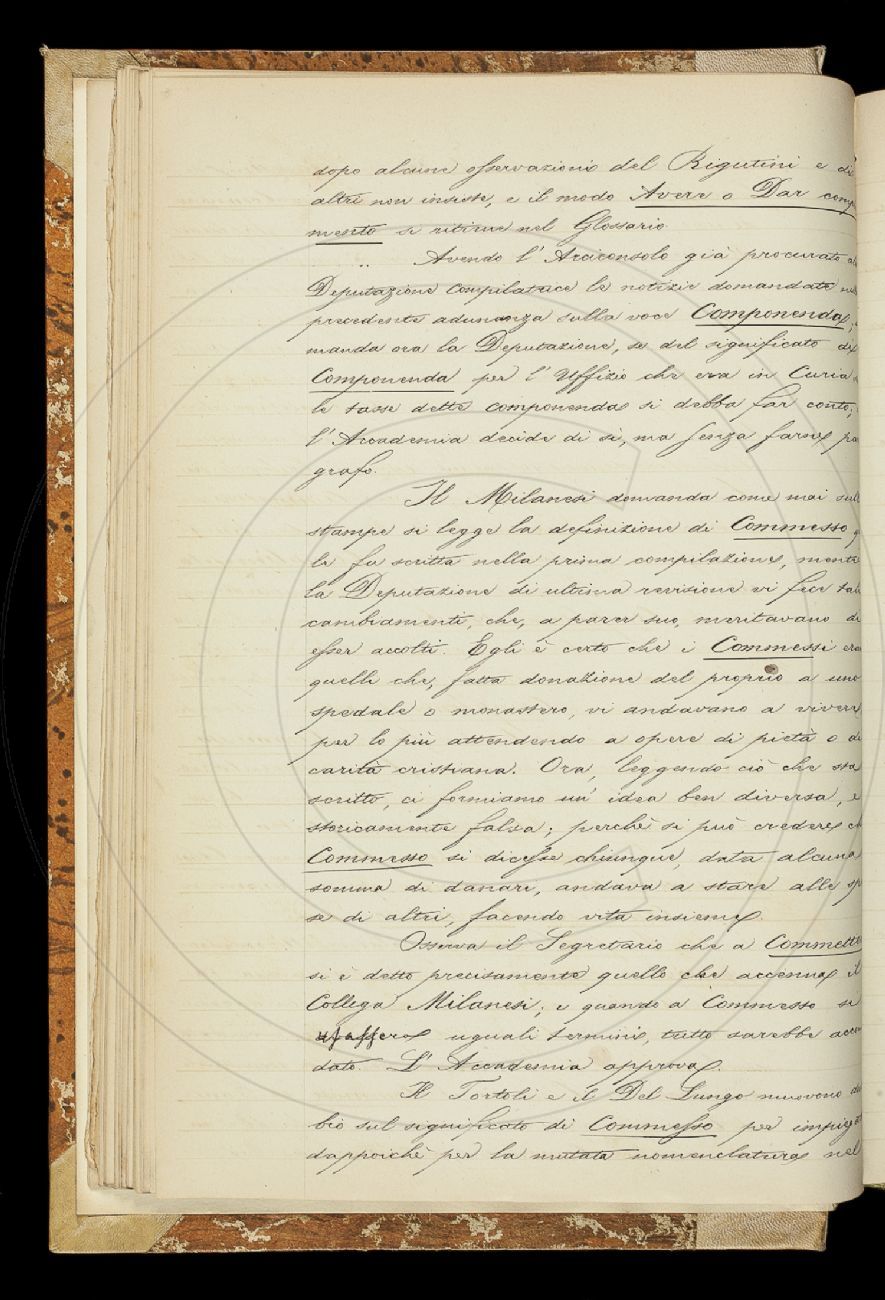 dopo alcune osservazioni del Rigutini e di
altri non insiste, e il modo Avere o Dar comp
mento si ritiene nel Glossario.
Avendo l'Arciconsolo già procurate al
Deputazione compilatrice le notizie domandate nell
precedente adunanza sulla voce Componenda,
manda ora la Deputazione, se del significato di
Componenda per l'Uffizio che era in Curia
le tasse dette componende si debba far conto;
l'Accademia decide di sì, ma senza farne pa
grafo.
Il Milanesi domanda come mai sull
stampe si legge la definizione di Commesso q
le fu scritta nella prima compilazione, mentre
la Deputazione di ultima revisione vi fece tali
cambiamenti, che, a parer suo, meritavano di
esser accolti. Egli è certo che i Commessi era
quelli che, fatta donazione del proprio a uno
spedale o monastero, vi andavano a vivere
per lo più attendendo a opere di pietà o di
carità cristiana. Ora, leggendo ciò che sta
scritto, ci formiamo un' idea ben diversa, e
storicamente falsa; perchè si può credere ch
Commesso si dicesse chiunque, data alcuna
somma di danari, andava a stare alle sp
se di altri, facendo vita insieme.
Osserva il Segretario che a Commette
si è detto precisamente quello che accenna il
Collega Milanesi; e quando a Commesso si
usassero uguali termini, tutto sarebbe acco
dato. L'Accademia approva.
Il Tortoli e il Del Lungo muovono du
bio sul significato di Commesso per impiegat
dappoichè per la mutata nomenclatura nel